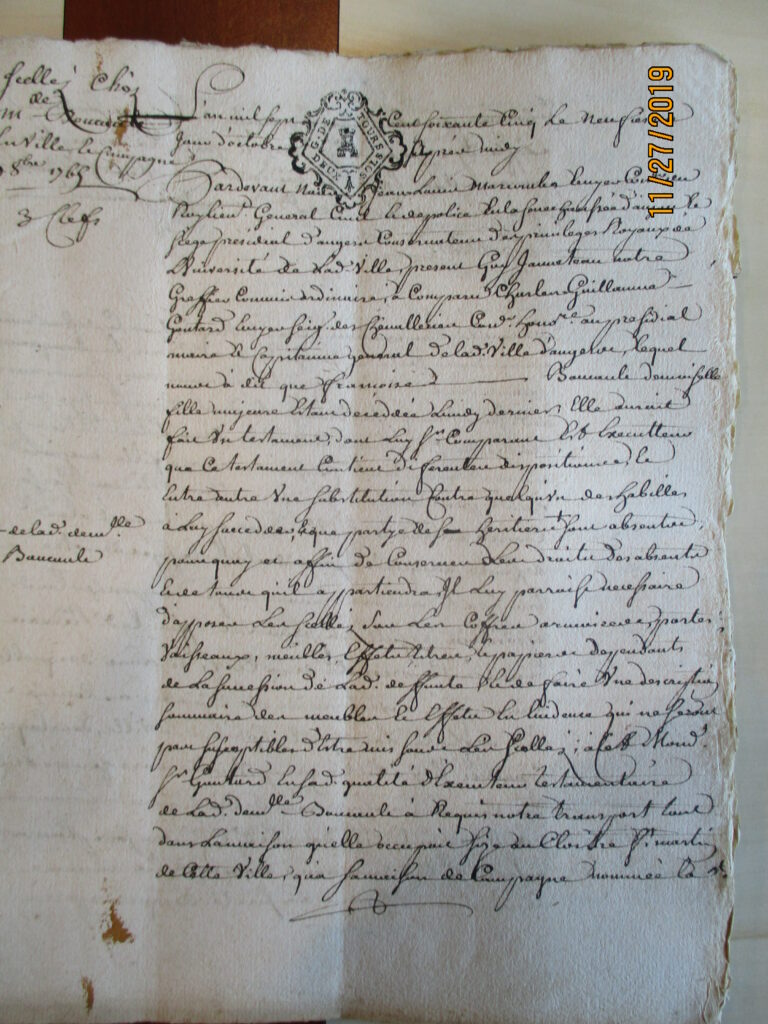 Scellés Chés
de
Mlle Boucault
En Ville & Campagne
8bre 1765
3 Clefs
L'an mil sept Cent soixante Cinq Le Neuf
Jour d'octobre apres midy
G. DE TOURS
DEUX SOLS
Pardevant Nous Marie Ecuyer Coner
du Roy lieut. General Civil & de police En la Senechaussée d'anjou &
Siege presidial d'angers Conservateur des privileges Royaux de
L'Université de Lad. Ville, present Guy Janneteau notre
Greffier Commis ordinaire, a Comparu Charles Guillaume
Goutard Ecuyer Seigr des Conr. honre. au presidial
maire & Capitaine general de lad. Ville d'angers, lequel
nous à dit que françoise Boucault demoiselle
fille majeure Estant decedée Lundy dernier, Elle auroit
fait Un testament, dont Luy Sr. Comparant Est Executteur
que Ce testament Contient differentes dispositions, &
Entre autre Une Substitution Contre quelqu'un des habilles
à Luy Succeder, & que partye de Ses heritiers Sont absents,
pourquoy et affin de Conserver Les droits des absents
& de tous ceux qu'il appartiendra, Il Luy parroist necessaire
d'apposer Les Scellés Sur Les Coffres armoires, portes,
Vaisseaux, meubles, Effets titres, & papiers dependants
de La Succession de Lad. deffunte & de faire Une description
Sommaire des meubles & Effets En Evidence qui ne Seront
pas Susceptibles d'Estre mis Sous Les Scellés; à Cet
Sr. Goutard En Sad. qualité d'Executeur testamentaire
de Lad. demlle. Boucault à Requis notre transport tant
dans La maison qu'elle occupoit Size au Cloistre St. martin
de Cette Ville, qu'a Sa maison de Campagne nommée La
de lad. demlle.
Boucault
11/27/2019